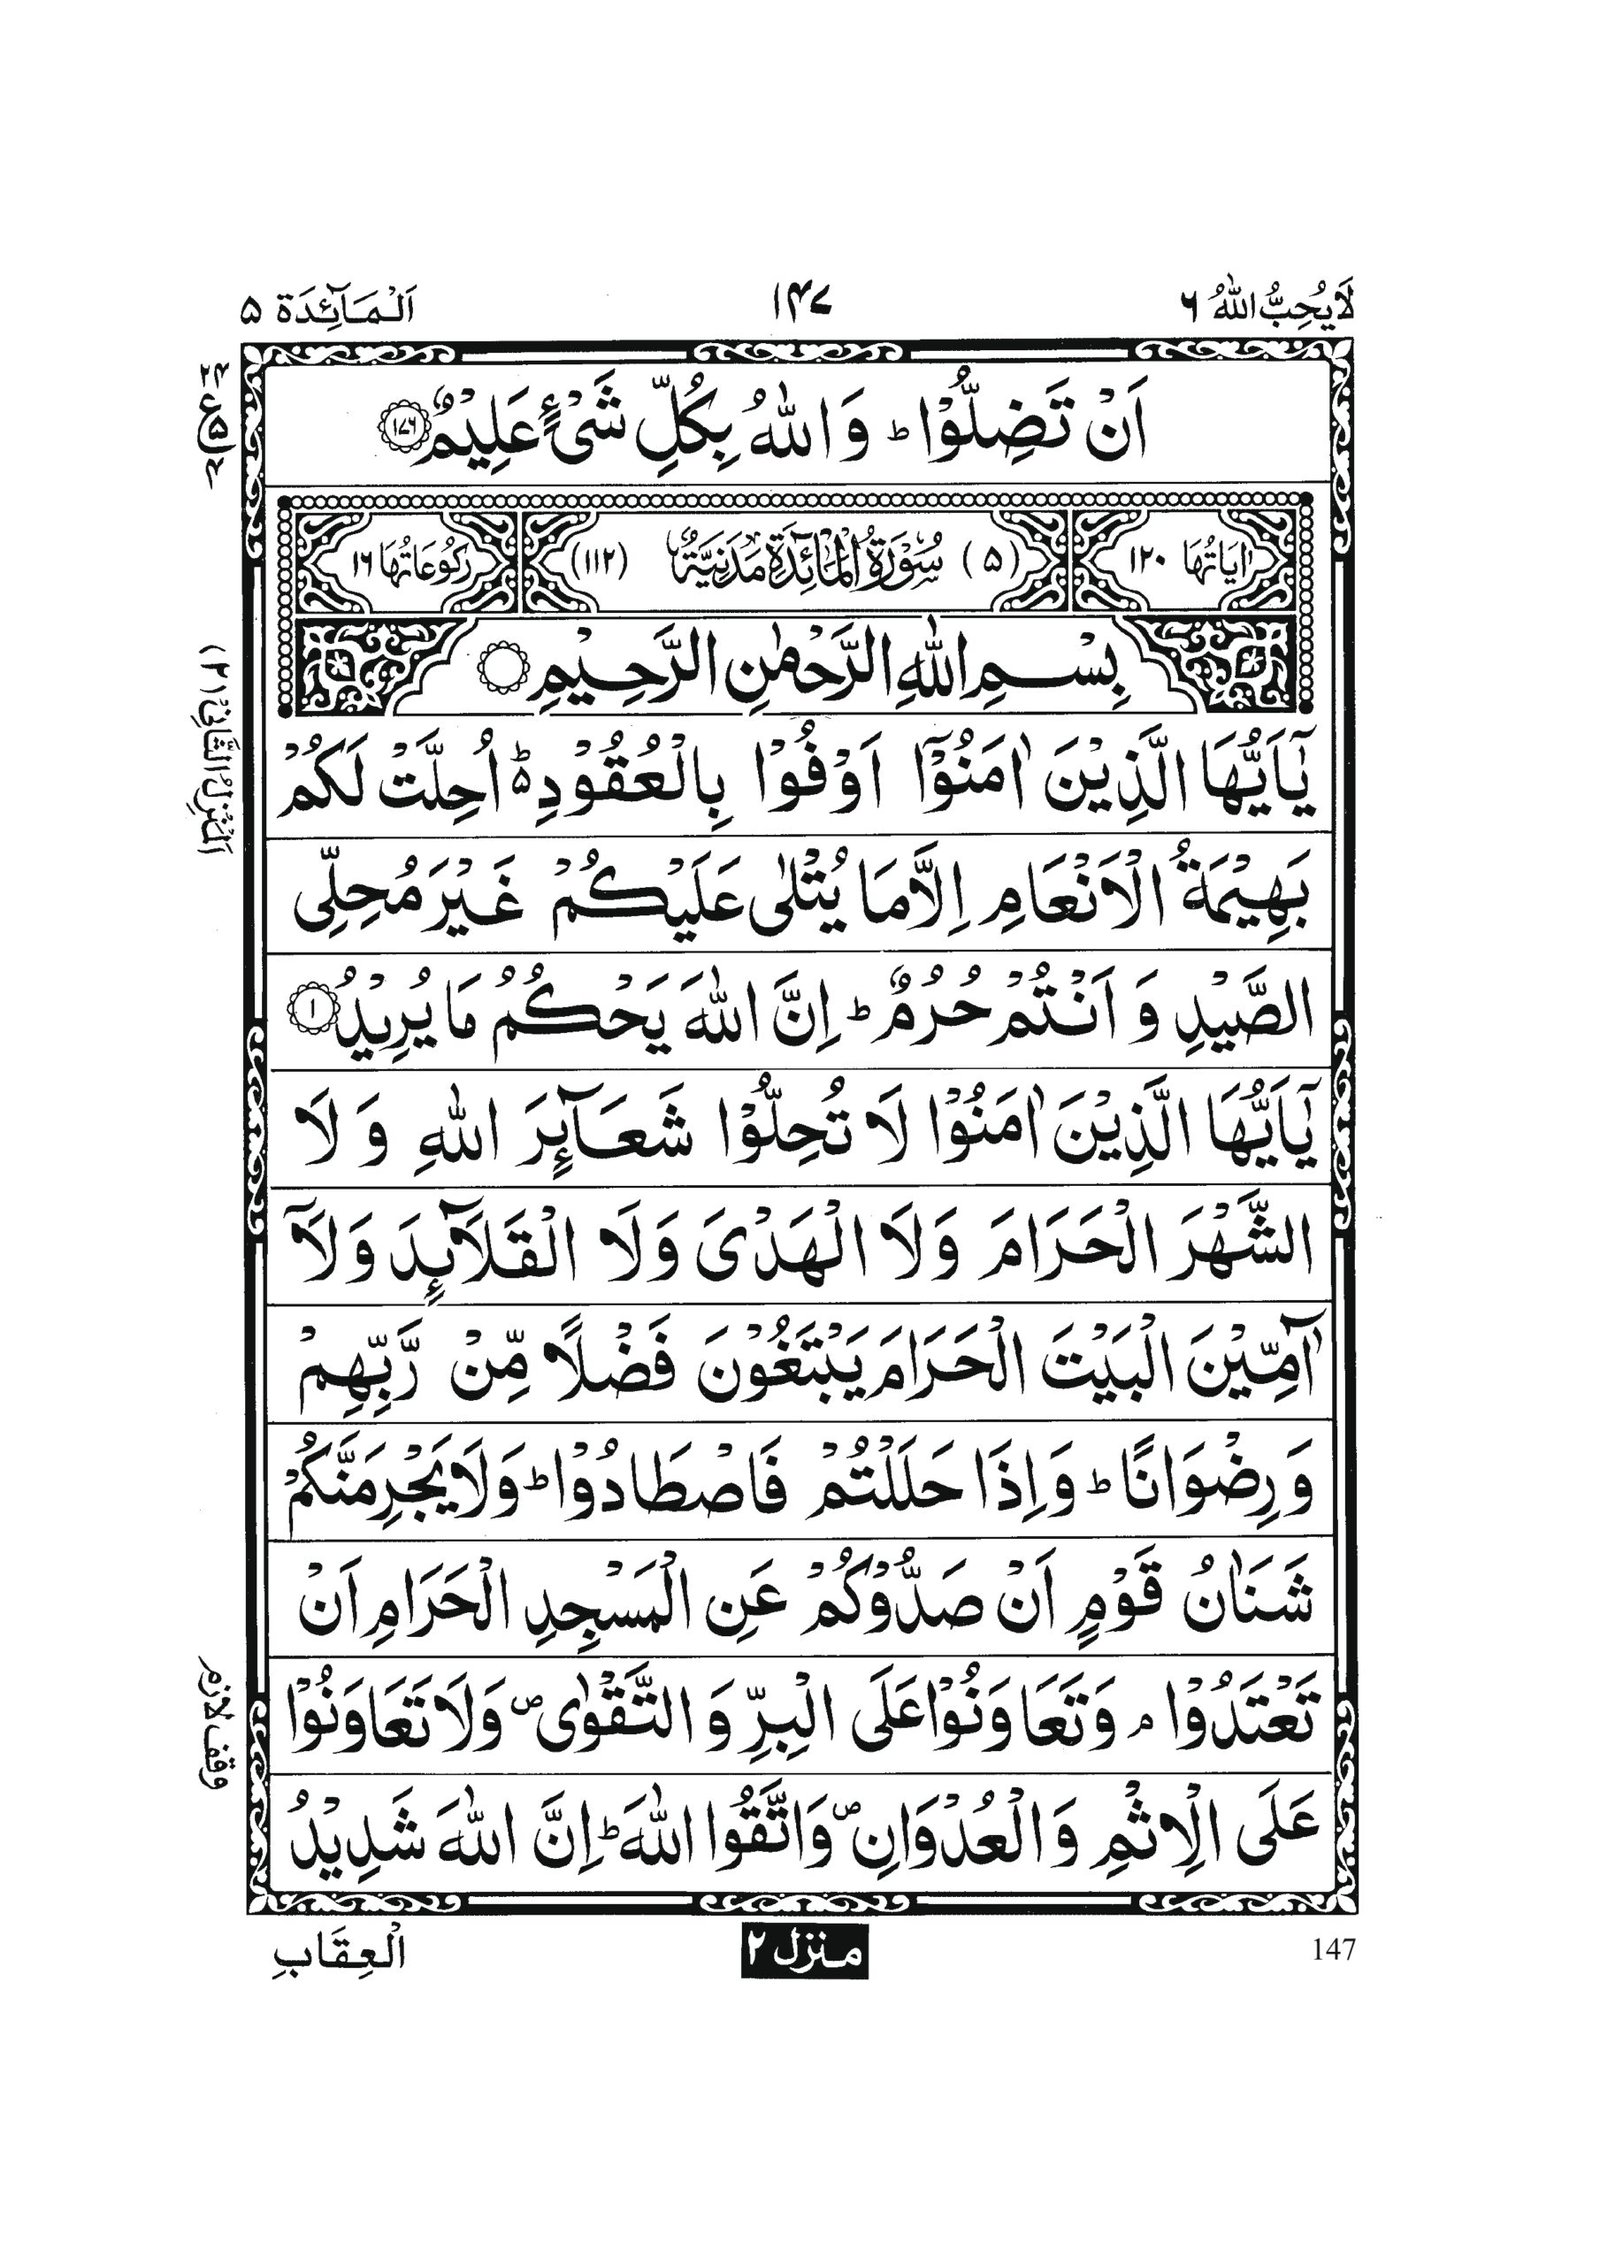 لَا يُحِبُّ اللّٰهُ ۶
۱۴۷
اَلْمَآئِدَة ۵
اَنْ تَضِلُّوْا ؕ وَ اللّٰهُ بِكُلِّ شَیْءٍ عَلِيْمٌ ۱۷۶
اٰيَاتُهَا ۱۲۰
(۵) سُوْرَةُ الْمَائِدَةِ مَدَنِيَّةٌ (۱۱۲)
رُكُوْعَاتُهَا ۱۶
بِسْمِ اللّٰهِ الرَّحْمٰنِ الرَّحِيْمِ
يٰۤاَيُّهَا الَّذِيْنَ اٰمَنُوْۤا اَوْفُوْا بِالْعُقُوْدِ ۵ؕ اُحِلَّتْ لَكُمْ
بَهِيْمَةُ الْاَنْعَامِ اِلَّا مَا يُتْلٰى عَلَيْكُمْ غَيْرَ مُحِلِّى
الصَّيْدِ وَ اَنْتُمْ حُرُمٌ ؕ اِنَّ اللّٰهَ يَحْكُمُ مَا يُرِيْدُ ۱
يٰۤاَيُّهَا الَّذِيْنَ اٰمَنُوْا لَا تُحِلُّوْا شَعَآئِرَ اللّٰهِ وَ لَا
الشَّهْرَ الْحَرَامَ وَلَا الْهَدْىَ وَلَا الْقَلَآئِدَ وَلَاۤ
آٰمِّيْنَ الْبَيْتَ الْحَرَامَ يَبْتَغُوْنَ فَضْلًا مِّنْ رَّبِّهِمْ
وَ رِضْوَانًا ؕ وَ اِذَا حَلَلْتُمْ فَاصْطَادُوْا ؕ وَلَا يَجْرِمَنَّكُمْ
شَنَاٰنُ قَوْمٍ اَنْ صَدُّوْكُمْ عَنِ الْمَسْجِدِ الْحَرَامِ اَنْ
تَعْتَدُوْا ۘ وَتَعَاوَنُوْا عَلَى الْبِرِّ وَ التَّقْوٰى ۪ وَلَا تَعَاوَنُوْا
عَلَى الْاِثْمِ وَ الْعُدْوَانِ ۪ وَاتَّقُوا اللّٰهَ ؕ اِنَّ اللّٰهَ شَدِيْدُ
الْعِقَابِ
منزل ۲
147
ع ۵ ۴
اَلْمَنْزِلُ الثَّانِىْ (۲)
وقف لازم